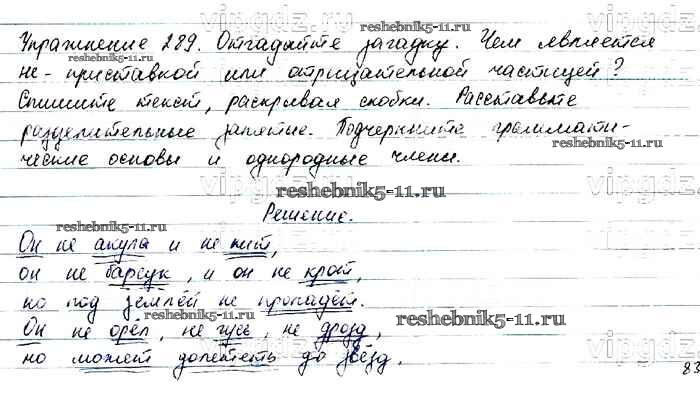 vipgdz.ru
reshebnik5-11.ru
Упражнение 289. Отгадайте загадку. Чем является
не- приставкой или отрицательной частицей?
Спишите текст, раскрывая скобки. Расставьте
разделительные запятые. Подчеркните граммати-
reshebnik5-11.ru
ческие основы и однородные члены.
vipgdz
reshebnik5-11.ru
Решение.
reshebnik5-11.ru
Он не акула и не кит,
он не барсук, и он не крот,
но под землёй не пропадёт.
reshebnik5-11.ru
Он не орёл, не гусь, не дрозд,
но может долететь до звёзд.
vipgdz
83